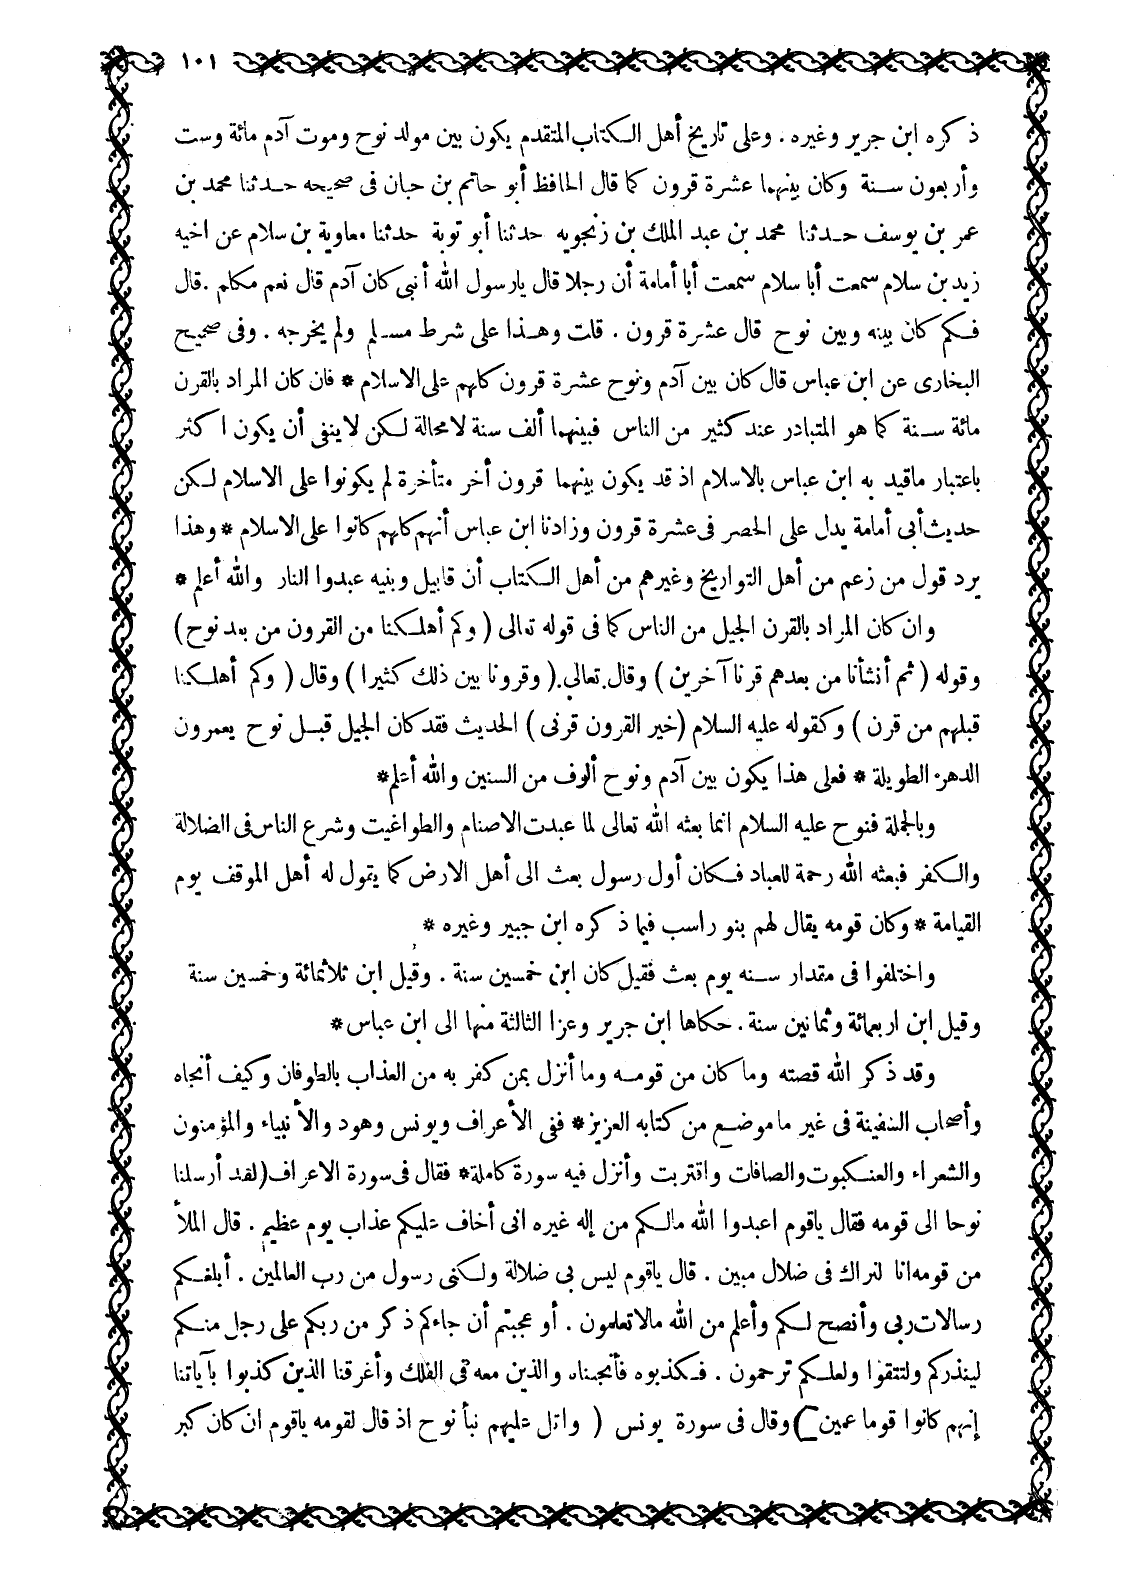 ١٠١
ذكره ابن جرير وغيره . وعلى تاريخ أهل الكتاب المتقدم يكون بين مولد نوح وموت آدم مائة وست
وأربعون سنة وكان بينهما عشرة قرون كما قال الحافظ أبو حاتم بن حبان فى صحيحه حدثنا محمد بن
عمر بن يوسف حدثنا محمد بن عبد الملك بن زنجويه حدثنا أبو توبة حدثنا معاوية بن سلام عن اخيه
زيد بن سلام سمعت أبا سلام سمعت أبا أمامة أن رجلا قال يارسول الله أنبى كان آدم قال نعم مكلم . قال
فكم كان بينه وبين نوح قال عشرة قرون . قلت وهذا على شرط مسلم ولم يخرجه . وفى صحيح
البخارى عن ابن عباس قال كان بين آدم ونوح عشرة قرون كلهم على الاسلام * فان كان المراد بالقرن
مائة سنة كما هو المتبادر عند كثير من الناس فبينهما ألف سنة لا محالة لكن لا ينفى أن يكون اكثر
باعتبار ماقيد به ابن عباس بالاسلام اذ قد يكون بينهما قرون أخر متأخرة لم يكونوا على الاسلام لكن
حديث أبى أمامة يدل على الحصر فى عشرة قرون وزادنا ابن عباس أنهم كلهم كانوا على الاسلام * وهذا
يرد قول من زعم من أهل التواريخ وغيرهم من أهل الكتاب أن قابيل وبنيه عبدوا النار والله أعلم *
وان كان المراد بالقرن الجيل من الناس كما فى قوله تعالى ( وكم أهلكنا من القرون من بعد نوح )
وقوله ( ثم أنشأنا من بعدهم قرنا آخرين ) وقال تعالى ( وقرونا بين ذلك كثيرا ) وقال ( وكم أهلكنا
قبلهم من قرن ) وكقوله عليه السلام (خير القرون قرنى ) الحديث فقد كان الجيل قبل نوح يعمرون
الدهر الطويلة * فعلى هذا يكون بين آدم ونوح ألوف من السنين والله أعلم*
وبالجملة فنوح عليه السلام انما بعثه الله تعالى لما عبدت الاصنام والطواغيت وشرع الناس فى الضلالة
والكفر فبعثه الله رحمة للعباد فكان أول رسول بعث الى أهل الارض كما يقول له أهل الموقف يوم
القيامة * وكان قومه يقال لهم بنو راسب فيما ذكره ابن جبير وغيره *
واختلفوا فى مقدار سنه يوم بعث فقيل كان ابن خمسين سنة . وقيل ابن ثلاثمائة وخمسين سنة
وقيل ابن اربعمائة وثمانين سنة . حكاها ابن جرير وعزا الثالثة منها الى ابن عباس *
وقد ذكر الله قصته وما كان من قومه وما أنزل بمن كفر به من العذاب بالطوفان وكيف أنجاه
وأصحاب السفينة فى غير ما موضع من كتابه العزيز* ففى الأعراف ويونس وهود والأنبياء والمؤمنون
والشعراء والعنكبوت والصافات واقتربت وأنزل فيه سورة كاملة* فقال فى سورة الاعراف (لقد أرسلنا
نوحا الى قومه فقال ياقوم اعبدوا الله مالكم من إله غيره انى أخاف عليكم عذاب يوم عظيم . قال الملأ
من قومه انا لنراك فى ضلال مبين . قال ياقوم ليس بى ضلالة ولكنى رسول من رب العالمين . أبلغكم
رسالات ربى وأنصح لكم وأعلم من الله مالا تعلمون . أو عجبتم أن جاءكم ذكر من ربكم على رجل منكم
لينذركم ولتتقوا ولعلكم ترحمون . فكذبوه فأنجيناه والذين معه فى الفلك وأغرقنا الذين كذبوا بآياتنا
إنهم كانوا قوما عمين ) وقال فى سورة يونس ( واتل عليهم نبأ نوح اذ قال لقومه ياقوم ان كان كبر